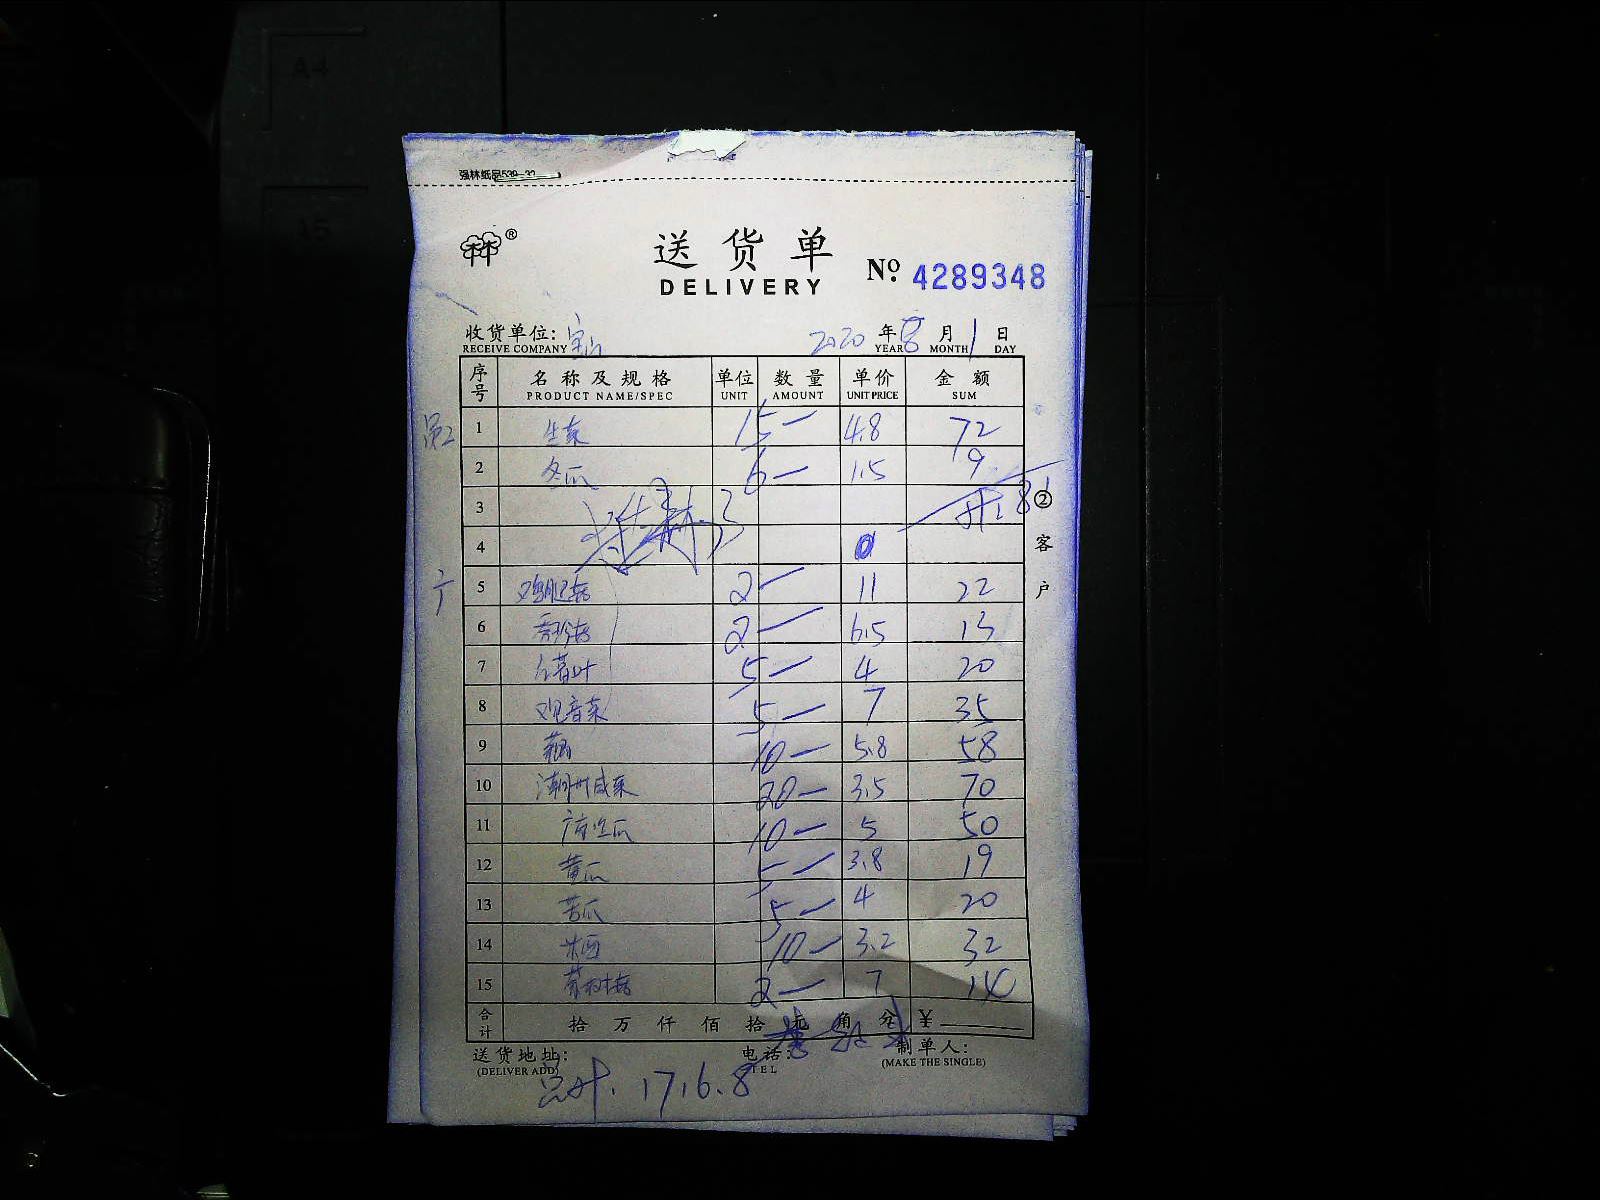 A4
A5
强林纸品539-32
®
送货单
DELIVERY
No. 4289348
收货单位:
RECEIVE COMPANY
2020 年 8 月 1 日
YEAR MONTH DAY
序号 名称及规格 单位 数量 单价 金额
PRODUCT NAME/SPEC UNIT AMOUNT UNIT PRICE SUM
1 生菜 15 — 4.8 72
2 冬瓜 6 — 1.5 9
3 共: 81
4
5 鸡腿菇 2 — 11 22
6 2 — 6.5 13
7 叶 5 — 4 20
8 观音菜 5 — 7 35
9 10 — 5.8 58
10 潮州咸菜 20 — 3.5 70
11 瓜 10 — 5 50
12 黄瓜 5 — 3.8 19
13 苦瓜 5 — 4 20
14 10 — 3.2 32
15 茶树菇 2 — 7 14
合计 拾 万 仟 佰 拾 元 角 分 ¥
②客户
送货地址: 电话: 制单人:
(DELIVER ADD) TEL (MAKE THE SINGLE)
1716.8